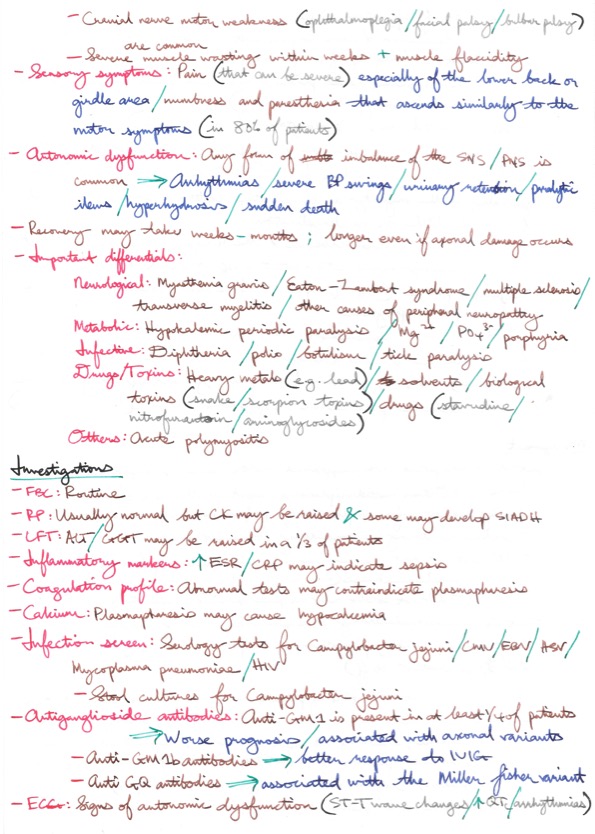 - Cranial nerve motor weakness (ophthalmoplegia/facial palsy/bulbar palsy)
are common
- Severe muscle wasting within weeks + muscle flaccidity
- Sensory symptoms: Pain (that can be severe) especially of the lower back or
girdle area/numbness and paresthesia that ascends similarly to the
motor symptoms (in 80% of patients)
- Autonomic dysfunction: Any form of inbalance of the SNS/PNS is
common → Arrhythmias/severe BP swings/urinary retention/paralytic
ileus/hyperhydrosis/sudden death
- Recovery may take weeks-months; longer even if axonal damage occurs
- Important differentials:
Neurological: Myasthenia gravis/Eaton-Lambert syndrome/multiple sclerosis/
transverse myelitis/other causes of peripheral neuropathy
Metabolic: Hypokalemic periodic paralysis/Mg²⁺/PO₄³⁻/porphyria
Infective: Diphtheria/polio/botulism/tick paralysis
Drugs/Toxins: Heavy metals (e.g. lead)/solvents/biological
toxins (snake/scorpion toxins)/drugs (stavudine/
nitrofurantoin/aminoglycosides)
Others: Acute polymyositis
Investigations
- FBC: Routine
- RP: Usually normal but CK may be raised & some may develop SIADH
- LFT: ALT/GGT may be raised in a 1/3 of patients
- Inflammatory markers: ↑ESR/CRP may indicate sepsis
- Coagulation profile: Abnormal tests may contraindicate plasmapheresis
- Calcium: Plasmapheresis may cause hypocalcemia
- Infection screen: Serology tests for Campylobacter jejuni/CMV/EBV/HSV/
Mycoplasma pneumoniae/HIV
- Stool cultures for Campylobacter jejuni
- Antiganglioside antibodies: Anti-GM1 is present in at least 1/4 of patients
→ Worse prognosis/associated with axonal variants
- Anti-GM1b antibodies → better response to IVIG
- Anti GQ antibodies → associated with the Miller fisher variant
- ECG: Signs of autonomic dysfunction (ST-T wave changes/↑QTc/arrhythmias)